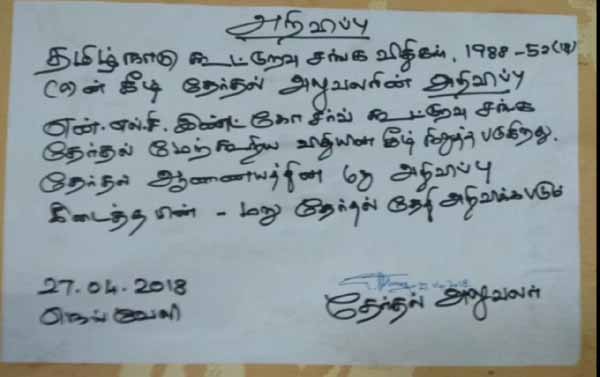 அறிவிப்பு
தமிழ்நாடு கூட்டுறவு சங்க விதிகள், 1988 - 52(18)
(a)ன் கீழ் தேர்தல் அலுவலரின் அறிவிப்பு
என்.எல்.சி. இண்ட்கோ சர்வ் கூட்டுறவு சங்க
தேர்தல் மேற்கூறிய விதியின் கீழ் நிறுத்தப்படுகிறது.
தேர்தல் ஆணையத்தின் மறு அறிவிப்பு
கிடைத்த பின் - மறு தேர்தல் தேதி அறிவிக்கபடும்
27.04.2018
நெய்வேலி
தேர்தல் அலுவலர்